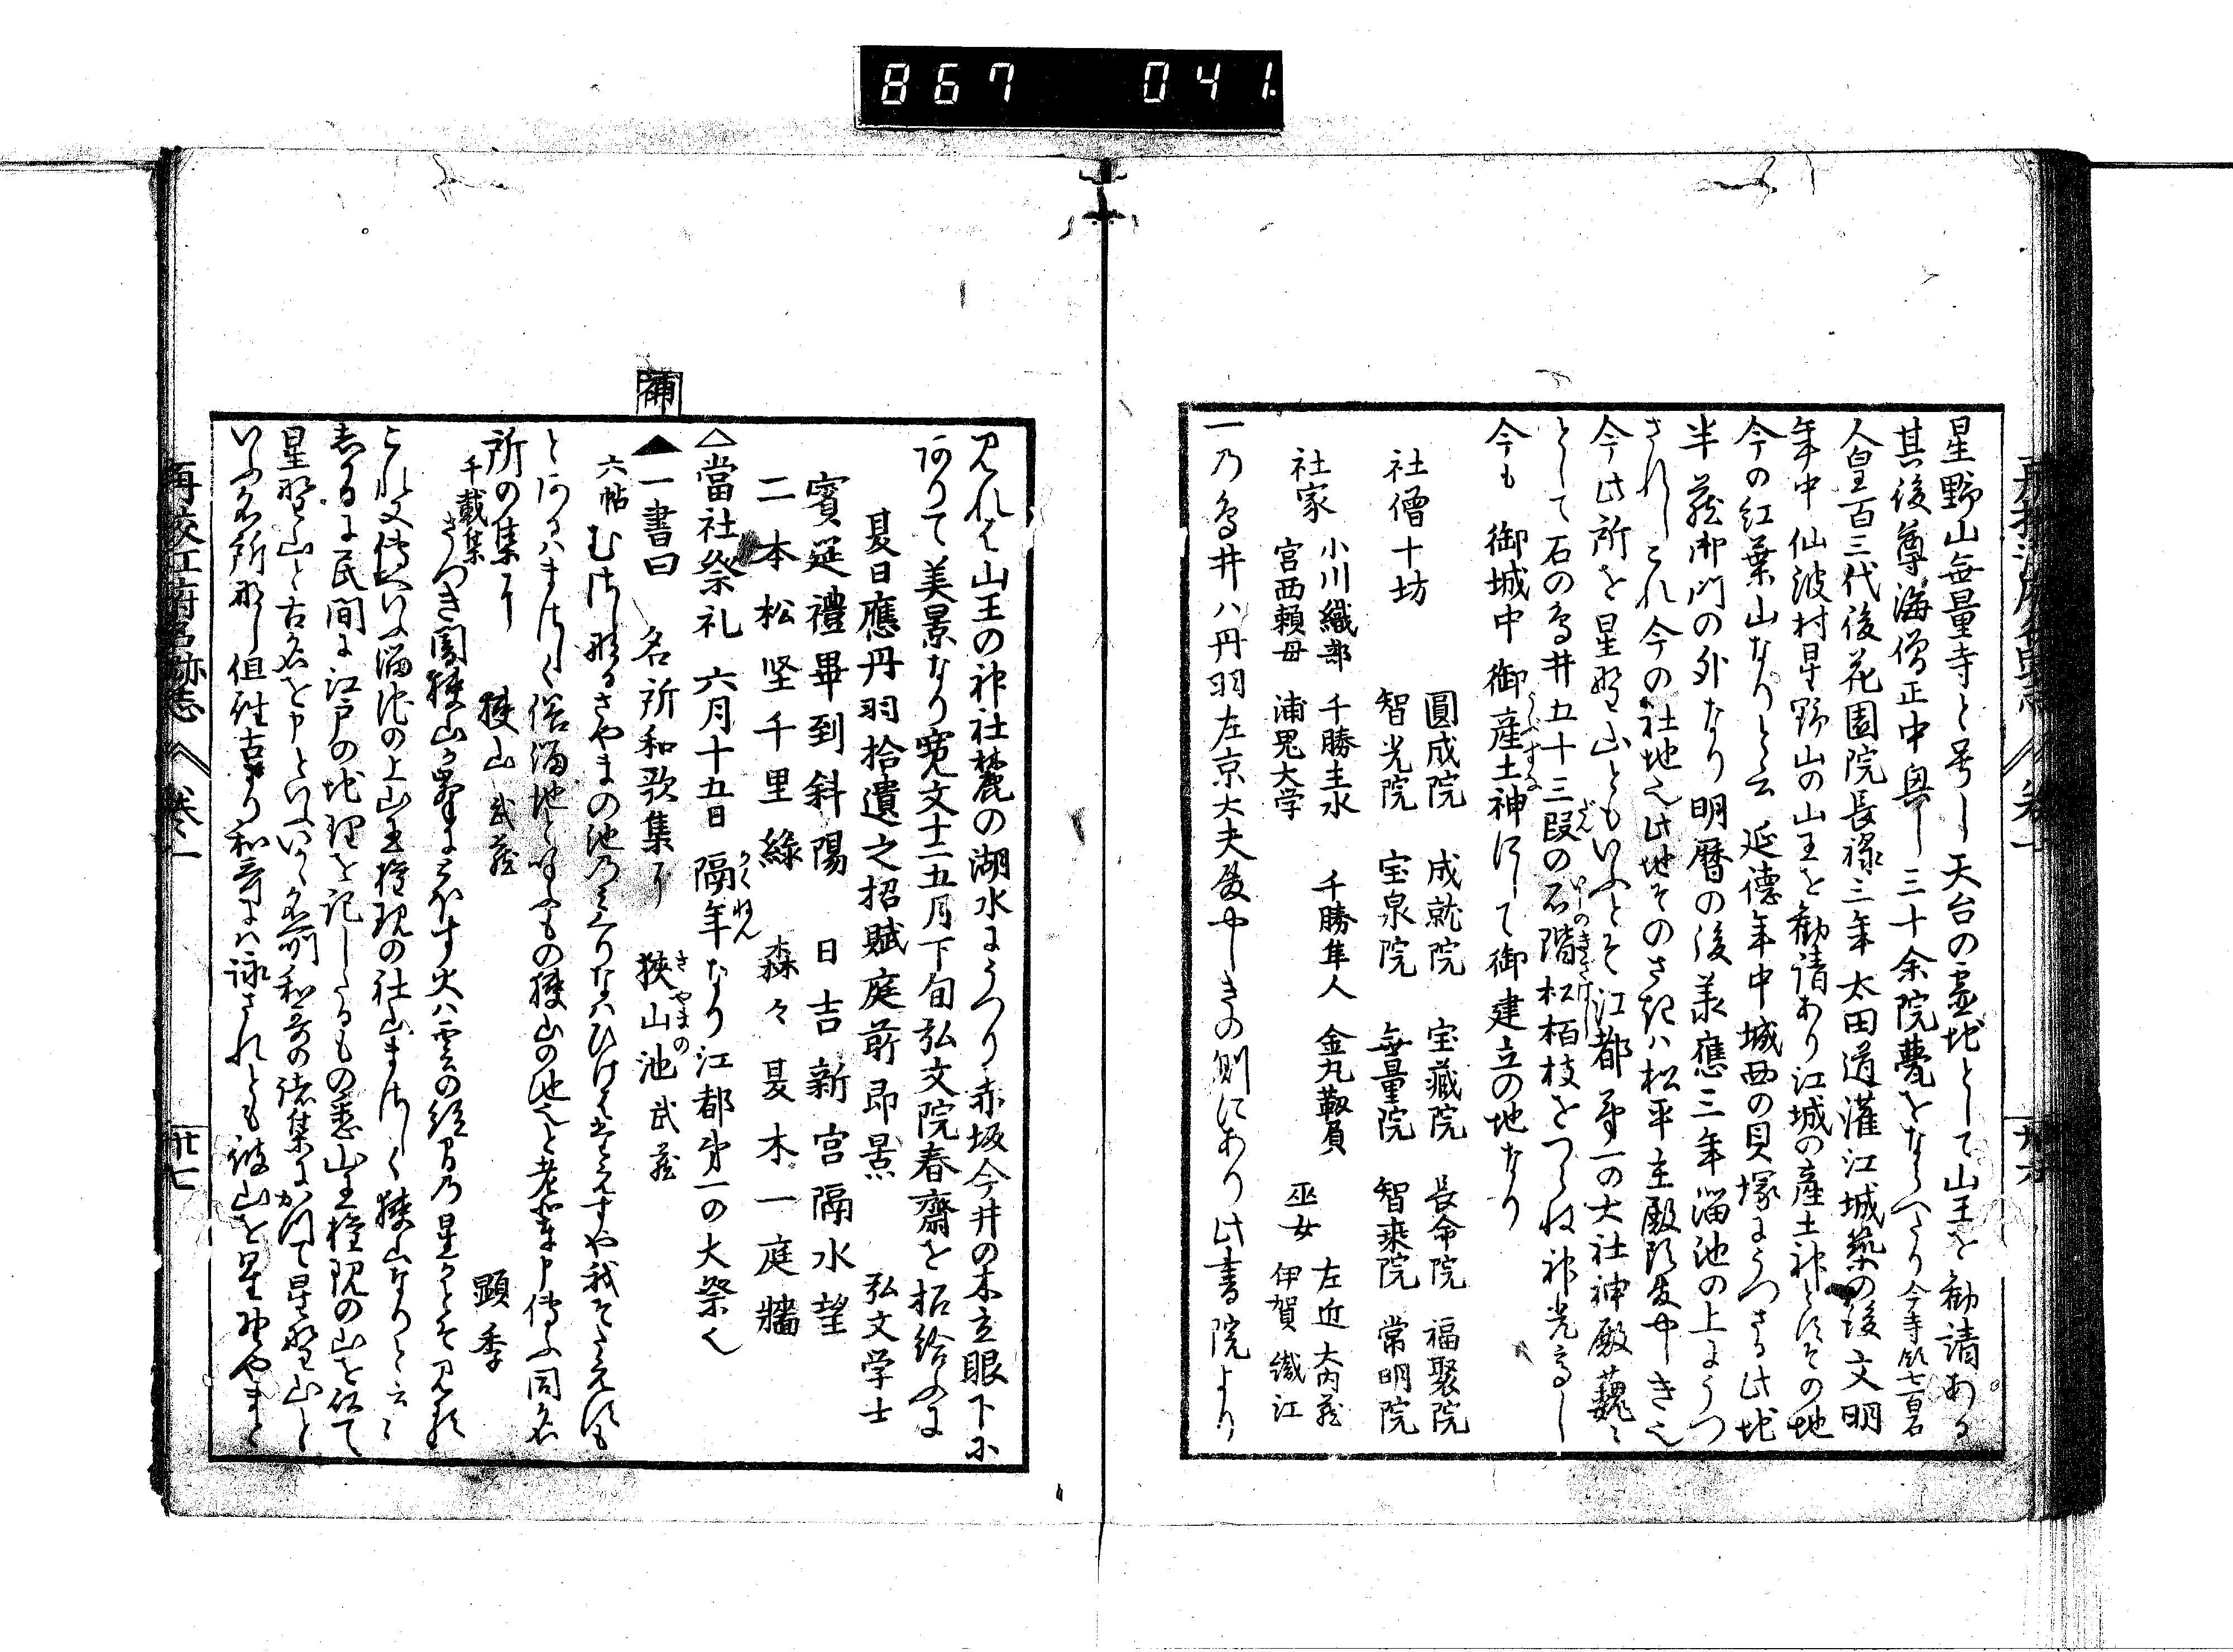 867 041
星野山無量寺と号し天台の霊地として山王を勧請ある
其後尊海僧正中興し三十余院甍をならへたり今寺領七百石
人皇百三代後花園院長禄三年太田道灌江城築の後文明
年中仙波村星野山の山王を勧請あり江城の産土神としその地
今の紅葉山なりと云延徳年中城西の貝塚にうつさる此地
半蔵御門の外なり明暦の後承應三年溜池の上にうつ
されしこれ今の社地也此地そのさきハ松平主殿頭殿やしき也
今此所を星野山ともいふとそ江都第一の大社神殿巍々
として石の鳥井五十三段の石階松栢枝をつらね神光高し
今も御城中御産土神にして御建立の地なり
社僧十坊 圓成院 成就院 宝蔵院 長命院 福聚院
智光院 宝泉院 無量院 智乗院 常明院
社家 小川織部 千勝主水 千勝隼人 金丸靱負 巫女 左近 大内蔵
宮西頼母 浦鬼大学 伊賀 織江
一乃鳥井ハ丹羽左京大夫殿やしきの側にあり此書院より
見れハ山王の神社麓の湖水にうつり赤坂今井の木立眼下に
ありて美景なり寛文十二五月下旬弘文院春齋を招給ふに
夏日應丹羽拾遺之招賦庭前即景 弘文学士
賓筵禮畢到斜陽 日吉新宮隔水望
二本松堅千里緑 森々夏木一庭牆
△當社祭礼 六月十五日 隔年なり江都第一の大祭也
補
▲一書曰 名所和歌集ニ 狭山池 武蔵
六帖 むさしなるさやまの池のみくりなハひけはたえすや我そたえする
とあるハまさしく俗溜池と呼ふもの狭山の池也と老輩申伝ふ同名
所の集ニ 狭山 武蔵 顕季
千載集 さつき闇狭山か峯にともす火ハ雲の絶間乃星かとそ見る
これ又伝へいふ溜池の上山王権現の社山まさしく狭山なりと云々
しかるに民間に江戸の地理を記したるもの悉山王権現の山を以て
星野山と古名を申といへいへと名所和哥の諸集にかつて星野山と
いふ名所なし但往古より和哥にハ詠されとも彼山を星野やまと
再校江府名跡志 巻一 廿七